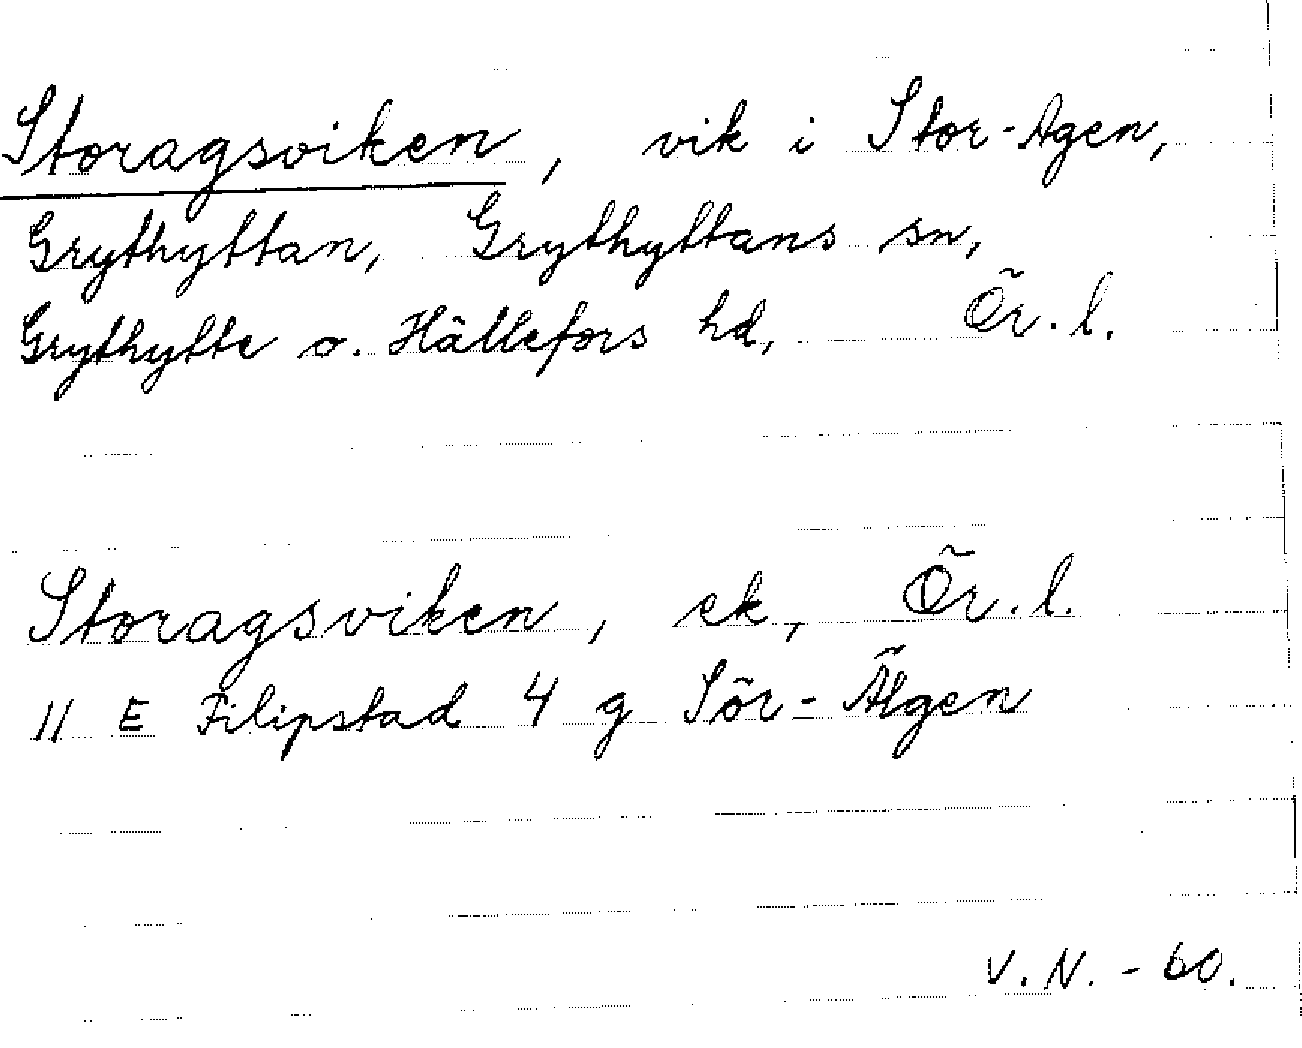 Storagsviken, vik i Stor-Agen,
Grythyttan, Grythyttans sn,
Grythytte o. Hällefors hd, Ör. l.
Storagsviken, ek, Ör. l.
11 E Filipstad 4 g Sör-Älgen
V. N. - 60.